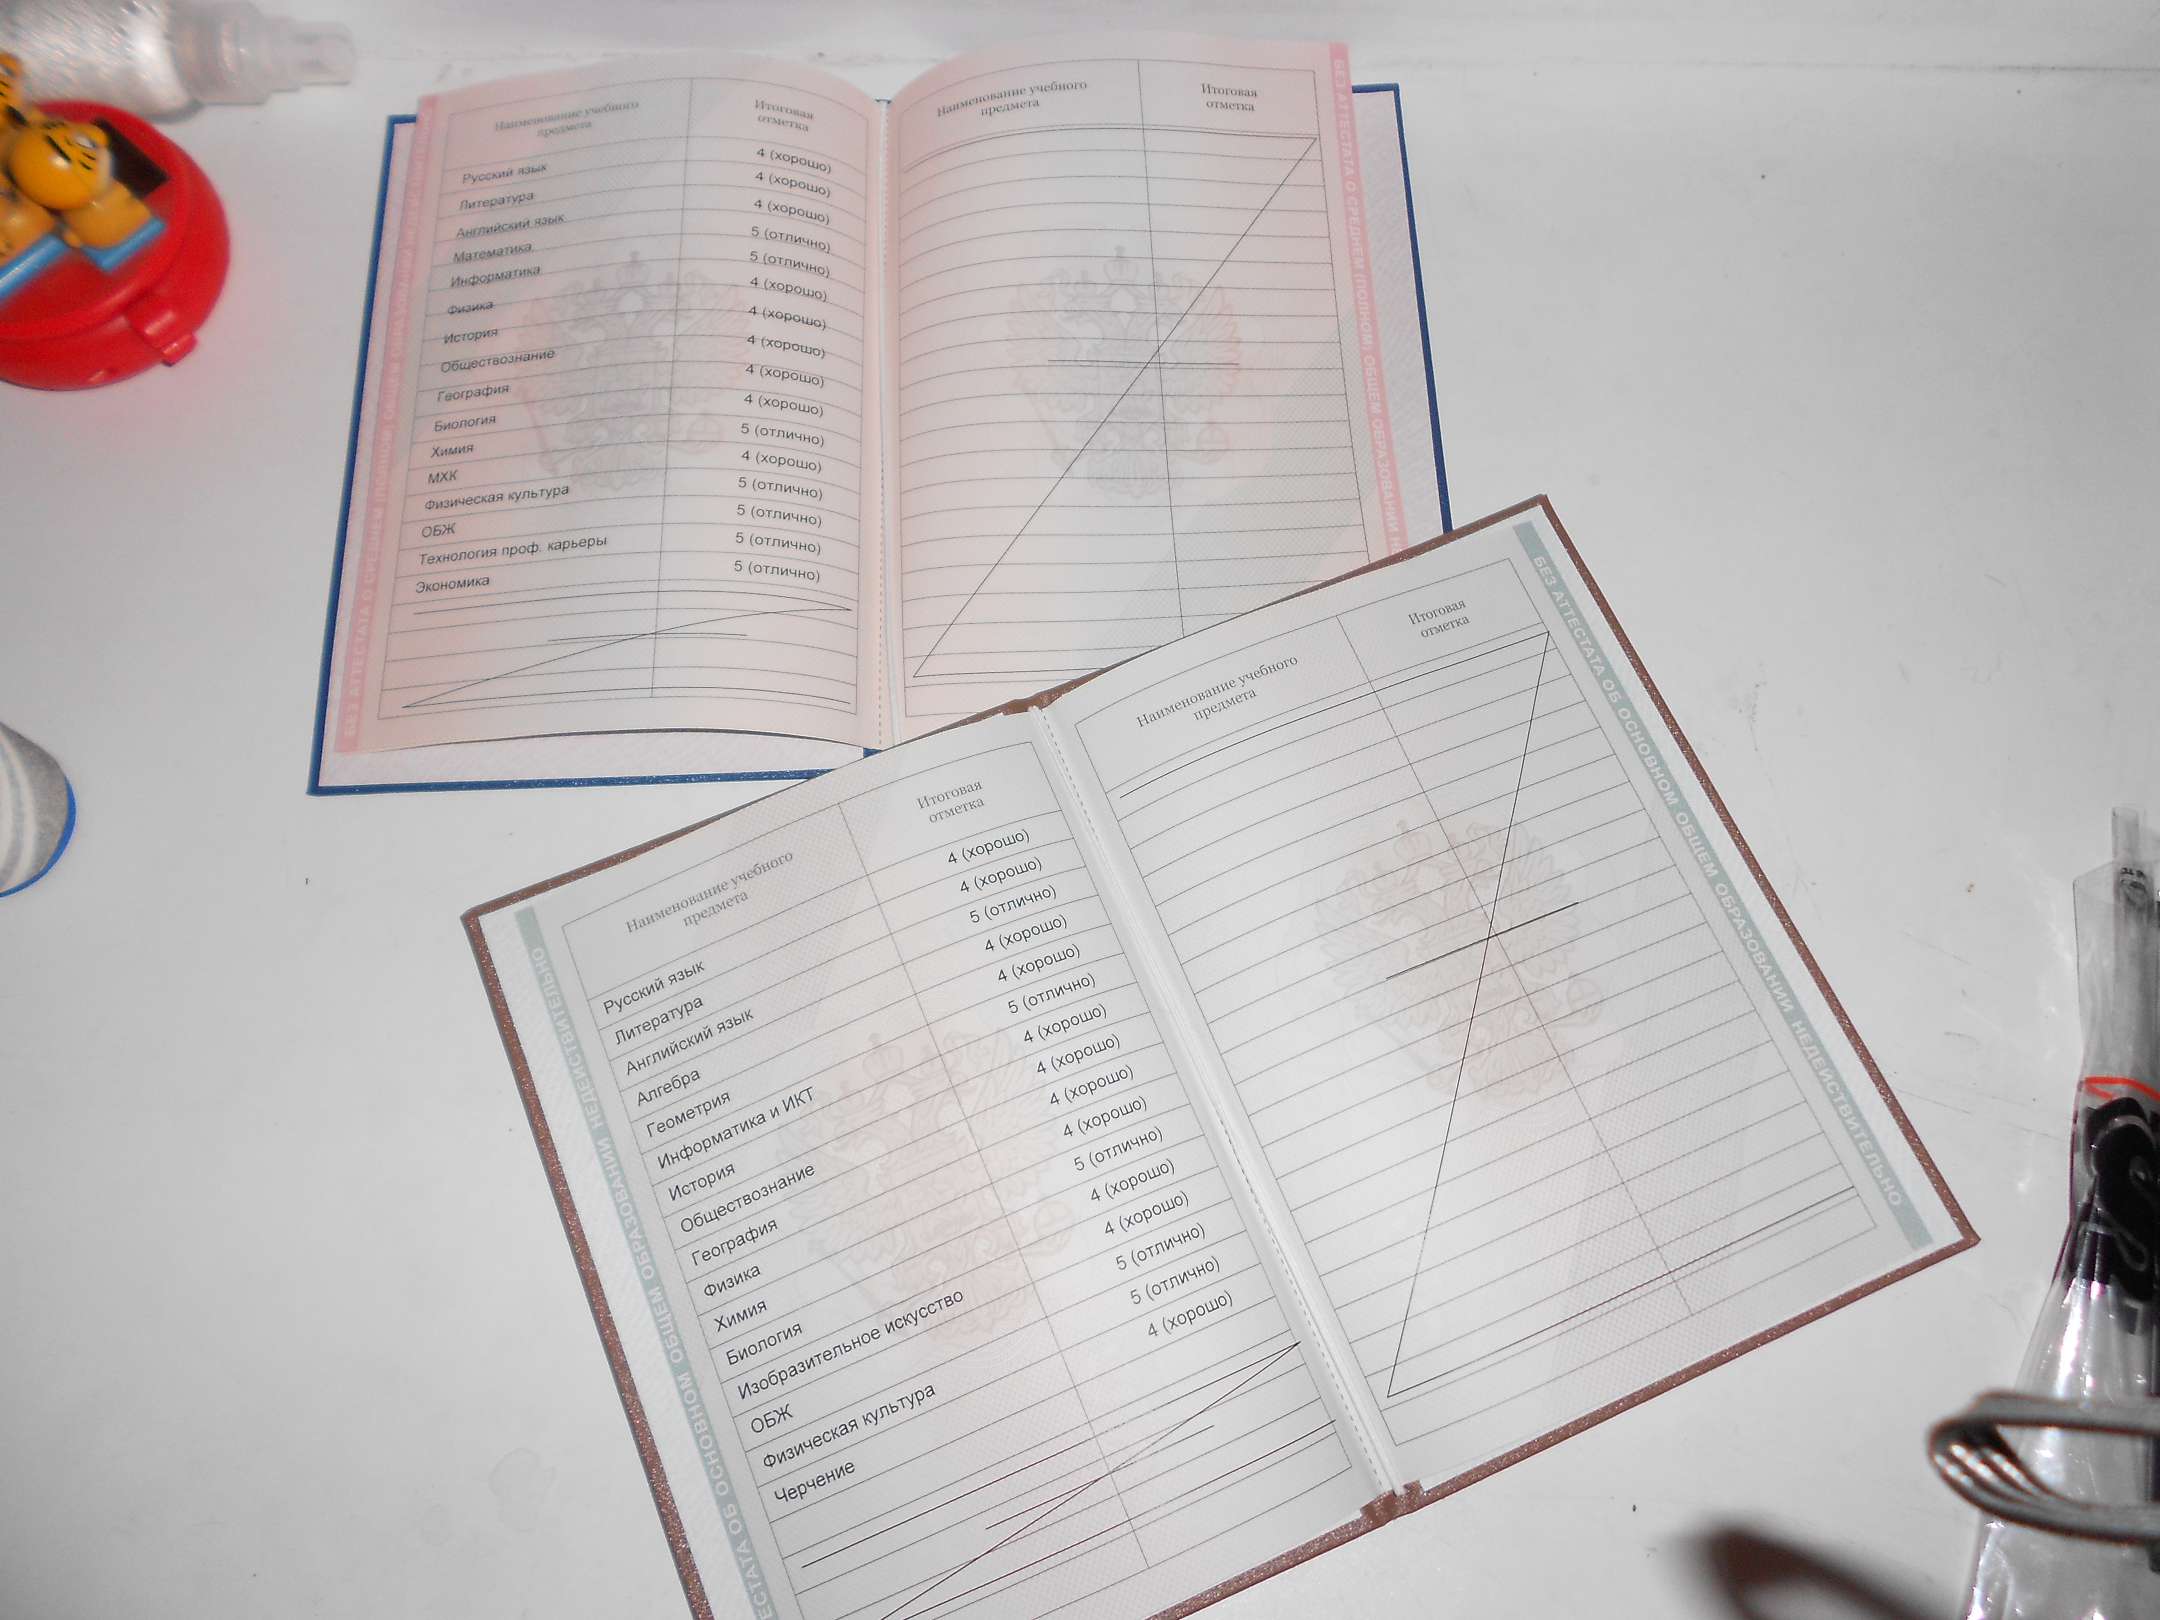 Наименование учебного
предмета
Итоговая
отметка
Русский язык 4 (хорошо)
Литература 4 (хорошо)
Английский язык 4 (хорошо)
Математика 5 (отлично)
Информатика 5 (отлично)
Физика 4 (хорошо)
История 4 (хорошо)
Обществознание 4 (хорошо)
География 4 (хорошо)
Биология 4 (хорошо)
Химия 5 (отлично)
МХК 4 (хорошо)
Физическая культура 5 (отлично)
ОБЖ 5 (отлично)
Технология проф. карьеры 5 (отлично)
Экономика 5 (отлично)
БЕЗ АТТЕСТАТА О СРЕДНЕМ (ПОЛНОМ) ОБЩЕМ ОБРАЗОВАНИИ НЕДЕЙСТВИТЕЛЬНО
Наименование учебного
предмета
Итоговая
отметка
БЕЗ АТТЕСТАТА О СРЕДНЕМ (ПОЛНОМ) ОБЩЕМ ОБРАЗОВАНИИ
Наименование учебного
предмета
Итоговая
отметка
Русский язык 4 (хорошо)
Литература 4 (хорошо)
Английский язык 5 (отлично)
Алгебра 4 (хорошо)
Геометрия 4 (хорошо)
Информатика и ИКТ 5 (отлично)
История 4 (хорошо)
Обществознание 4 (хорошо)
География 4 (хорошо)
Физика 4 (хорошо)
Химия 5 (отлично)
Биология 4 (хорошо)
Изобразительное искусство 4 (хорошо)
ОБЖ 5 (отлично)
Физическая культура 5 (отлично)
Черчение 4 (хорошо)
ЕСТАТА ОБ ОСНОВНОМ ОБЩЕМ ОБРАЗОВАНИИ НЕДЕЙСТВИТЕЛЬНО
Наименование учебного
предмета
Итоговая
отметка
БЕЗ АТТЕСТАТА ОБ ОСНОВНОМ ОБЩЕМ ОБРАЗОВАНИИ НЕДЕЙСТВИТЕЛЬНО